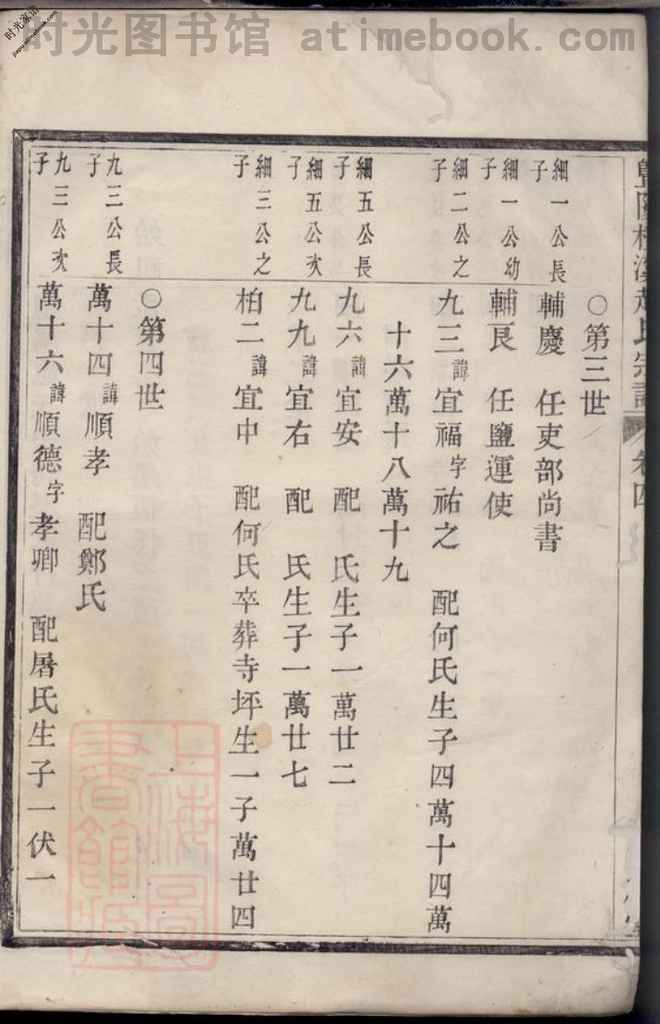 时光图书馆 atimebook.com
时光图书馆
暨陽 趙氏宗譜 卷四
○第三世
細一公長子 輔慶 任吏部尚書
細一公幼子 輔良 任鹽運使
細二公之子 九三諱宜福字祐之 配何氏生子四萬十四萬
十六萬十八萬十九
細五公長子 九六諱宜安 配 氏生子一萬廿二
細五公次子 九九諱宜右 配 氏生子一萬廿七
細三公之子 柏二諱宜中 配何氏卒葬寺坪生一子萬廿四
○第四世
九三公長子 萬十四諱順孝 配鄭氏
九三公次子 萬十六諱順德字孝卿 配屠氏生子一伏一
上海圖書館藏